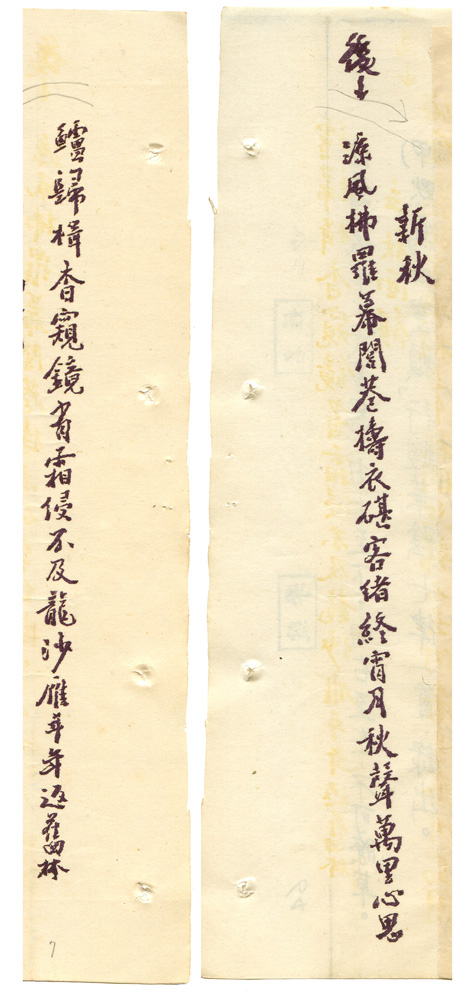 新秋
涼風拂羅幕閭巷擣衣碪客緒終宵月秋聲萬里心思
鱸歸楫杳窺鏡省霜侵不及龍沙雁年年返舊林
7